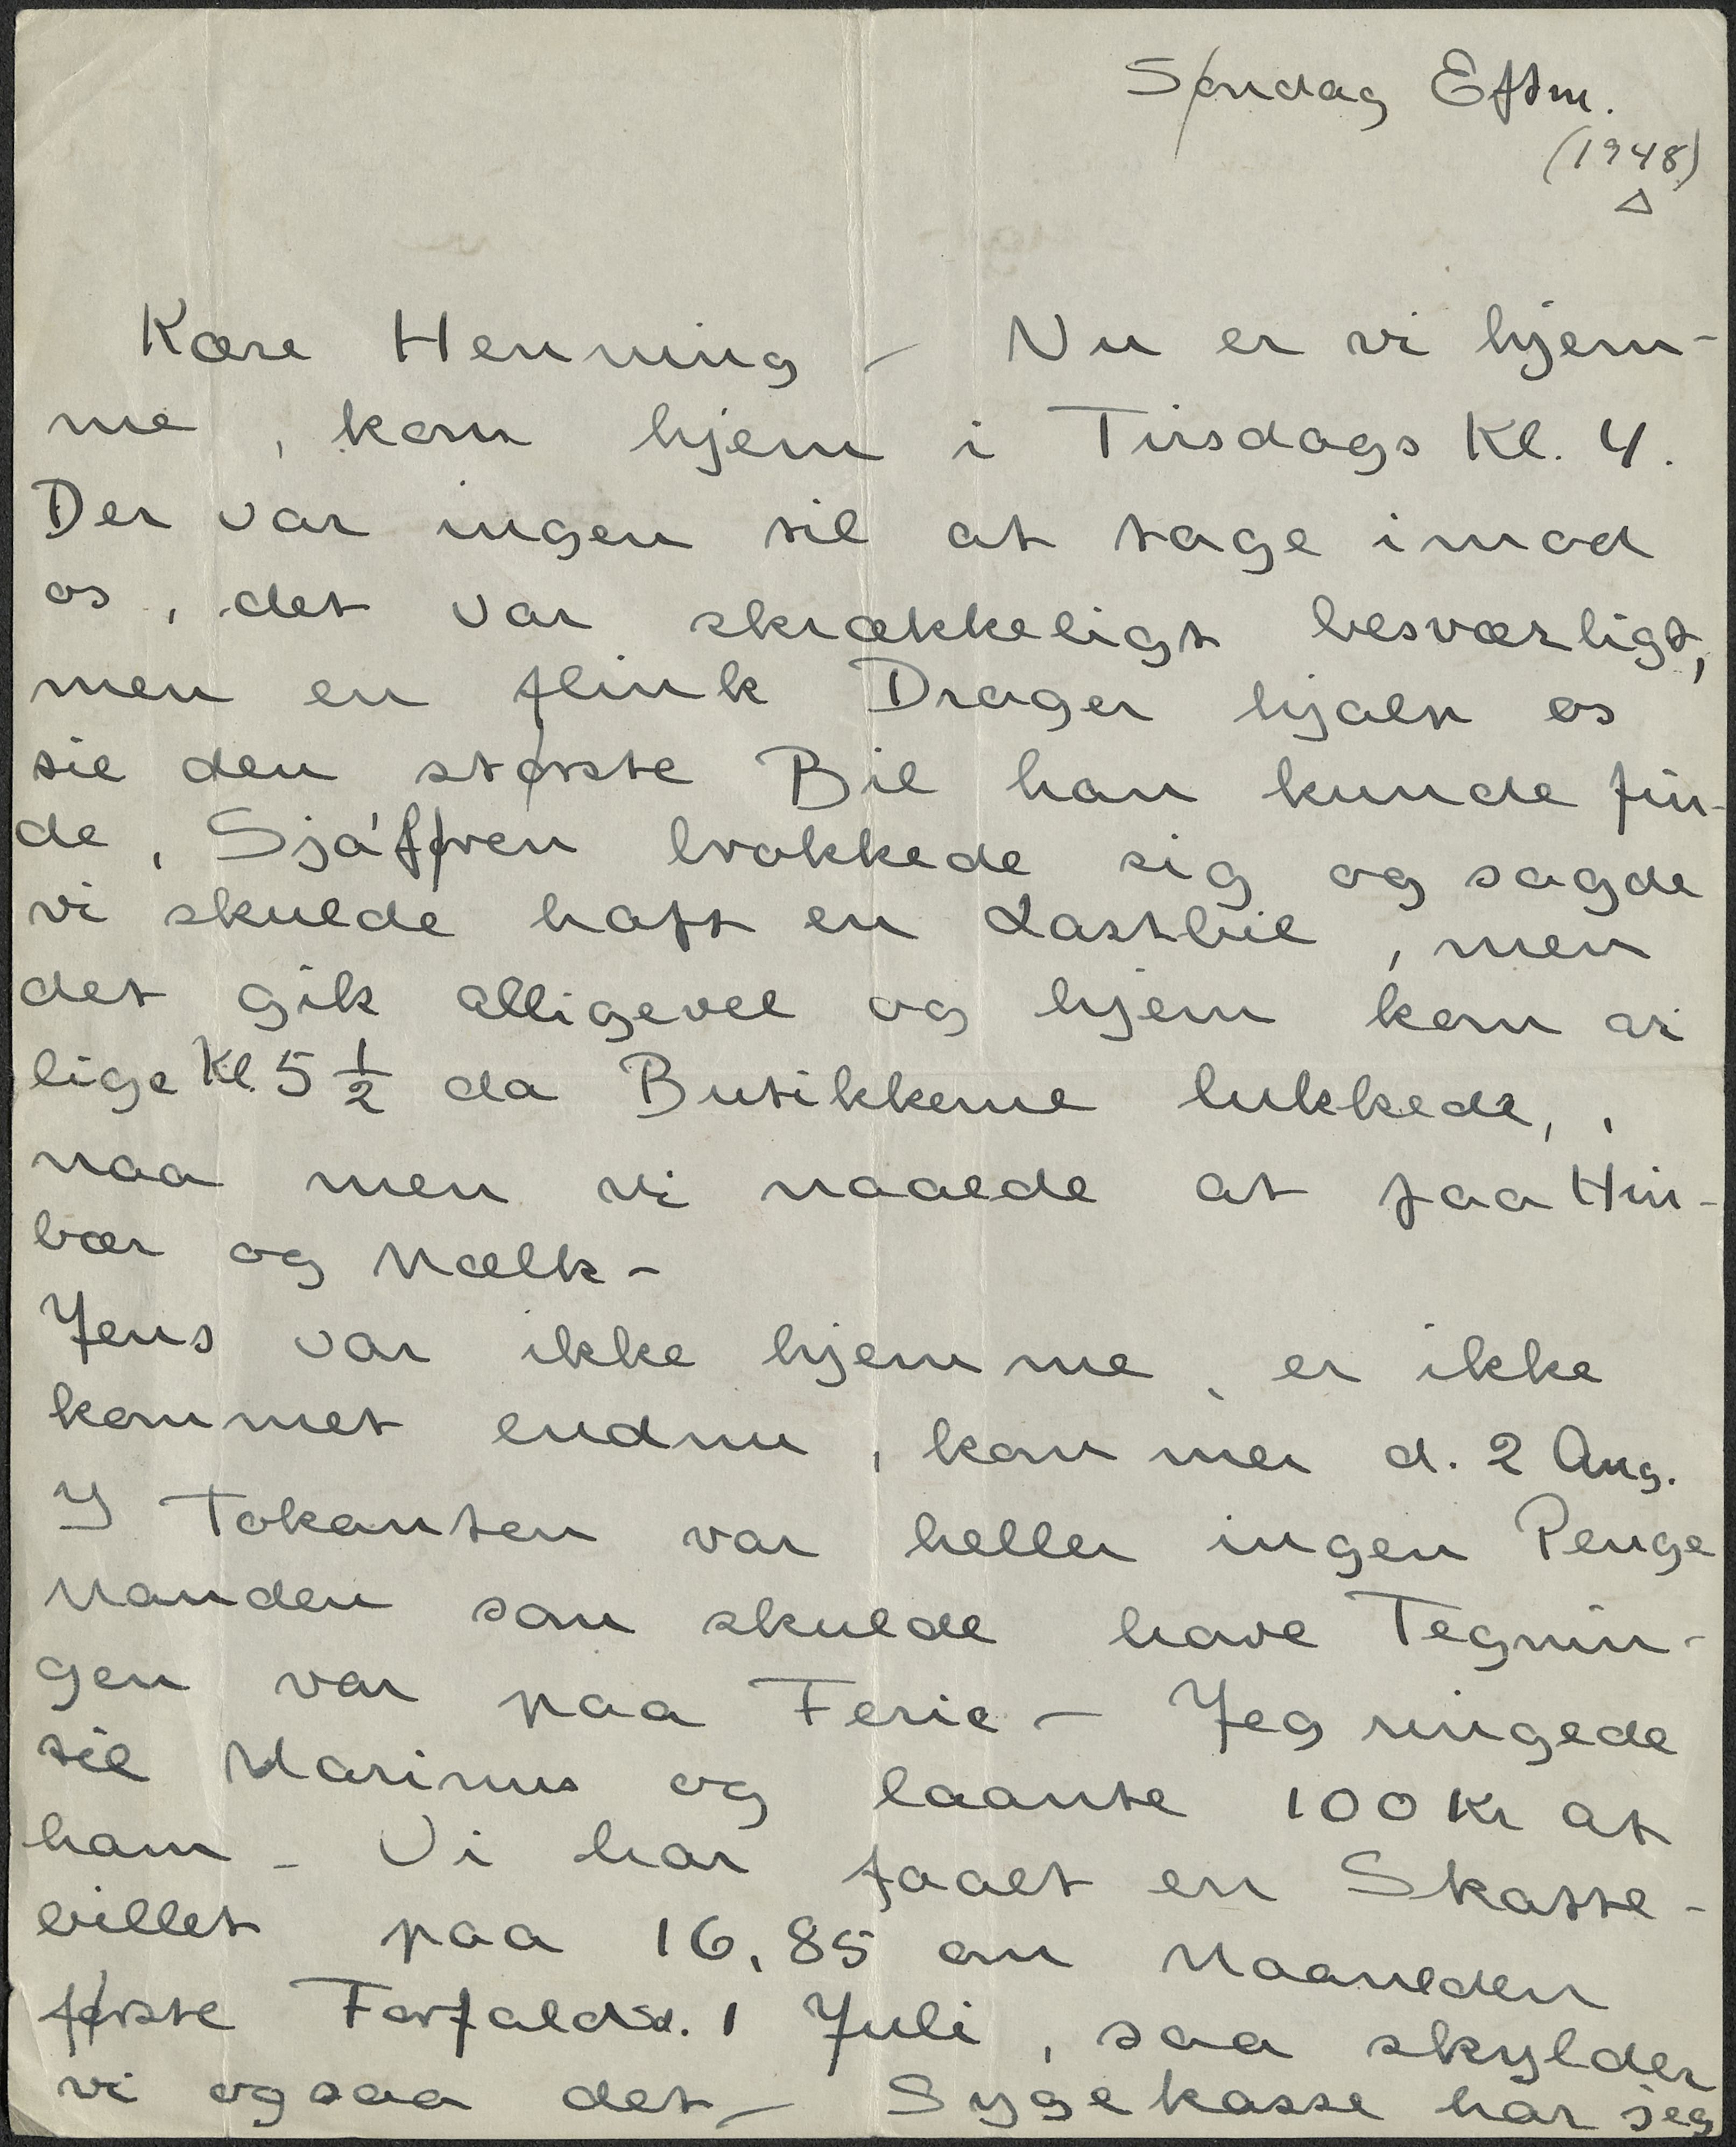 Søndag Eftm.
(1948)
Kære Henning – Nu er vi hjem-
me, kom hjem i Tirsdags Kl. 4.
Der var ingen til at tage imod
os, det var skrækkeligt besværligt,
men en flink Drager hjalp os
til den største Bil han kunde fin-
de, Sjåfføren brokkede sig og sagde
vi skulde haft en Lastbil, men
det gik alligevel og hjem kom vi
lige Kl. 5 1/2 da Butikkerne lukkede,,
naa men vi naaede at faa Hin-
bær og Mælk –
Jens var ikke hjemme, er ikke
kommet endnu, kommer d. 2 Aug.
I Tokanten var heller ingen Penge
Manden som skulde have Tegnin-
gen var paa Ferie – Jeg ringede
til Marinus og laante 100 Kr af
ham – Vi har faaet en Skatte-
billet paa 16,85 om Maaneden
første Forfaldsd. 1 Juli, saa skylder
vi ogsaa det – Sygekasse har jeg